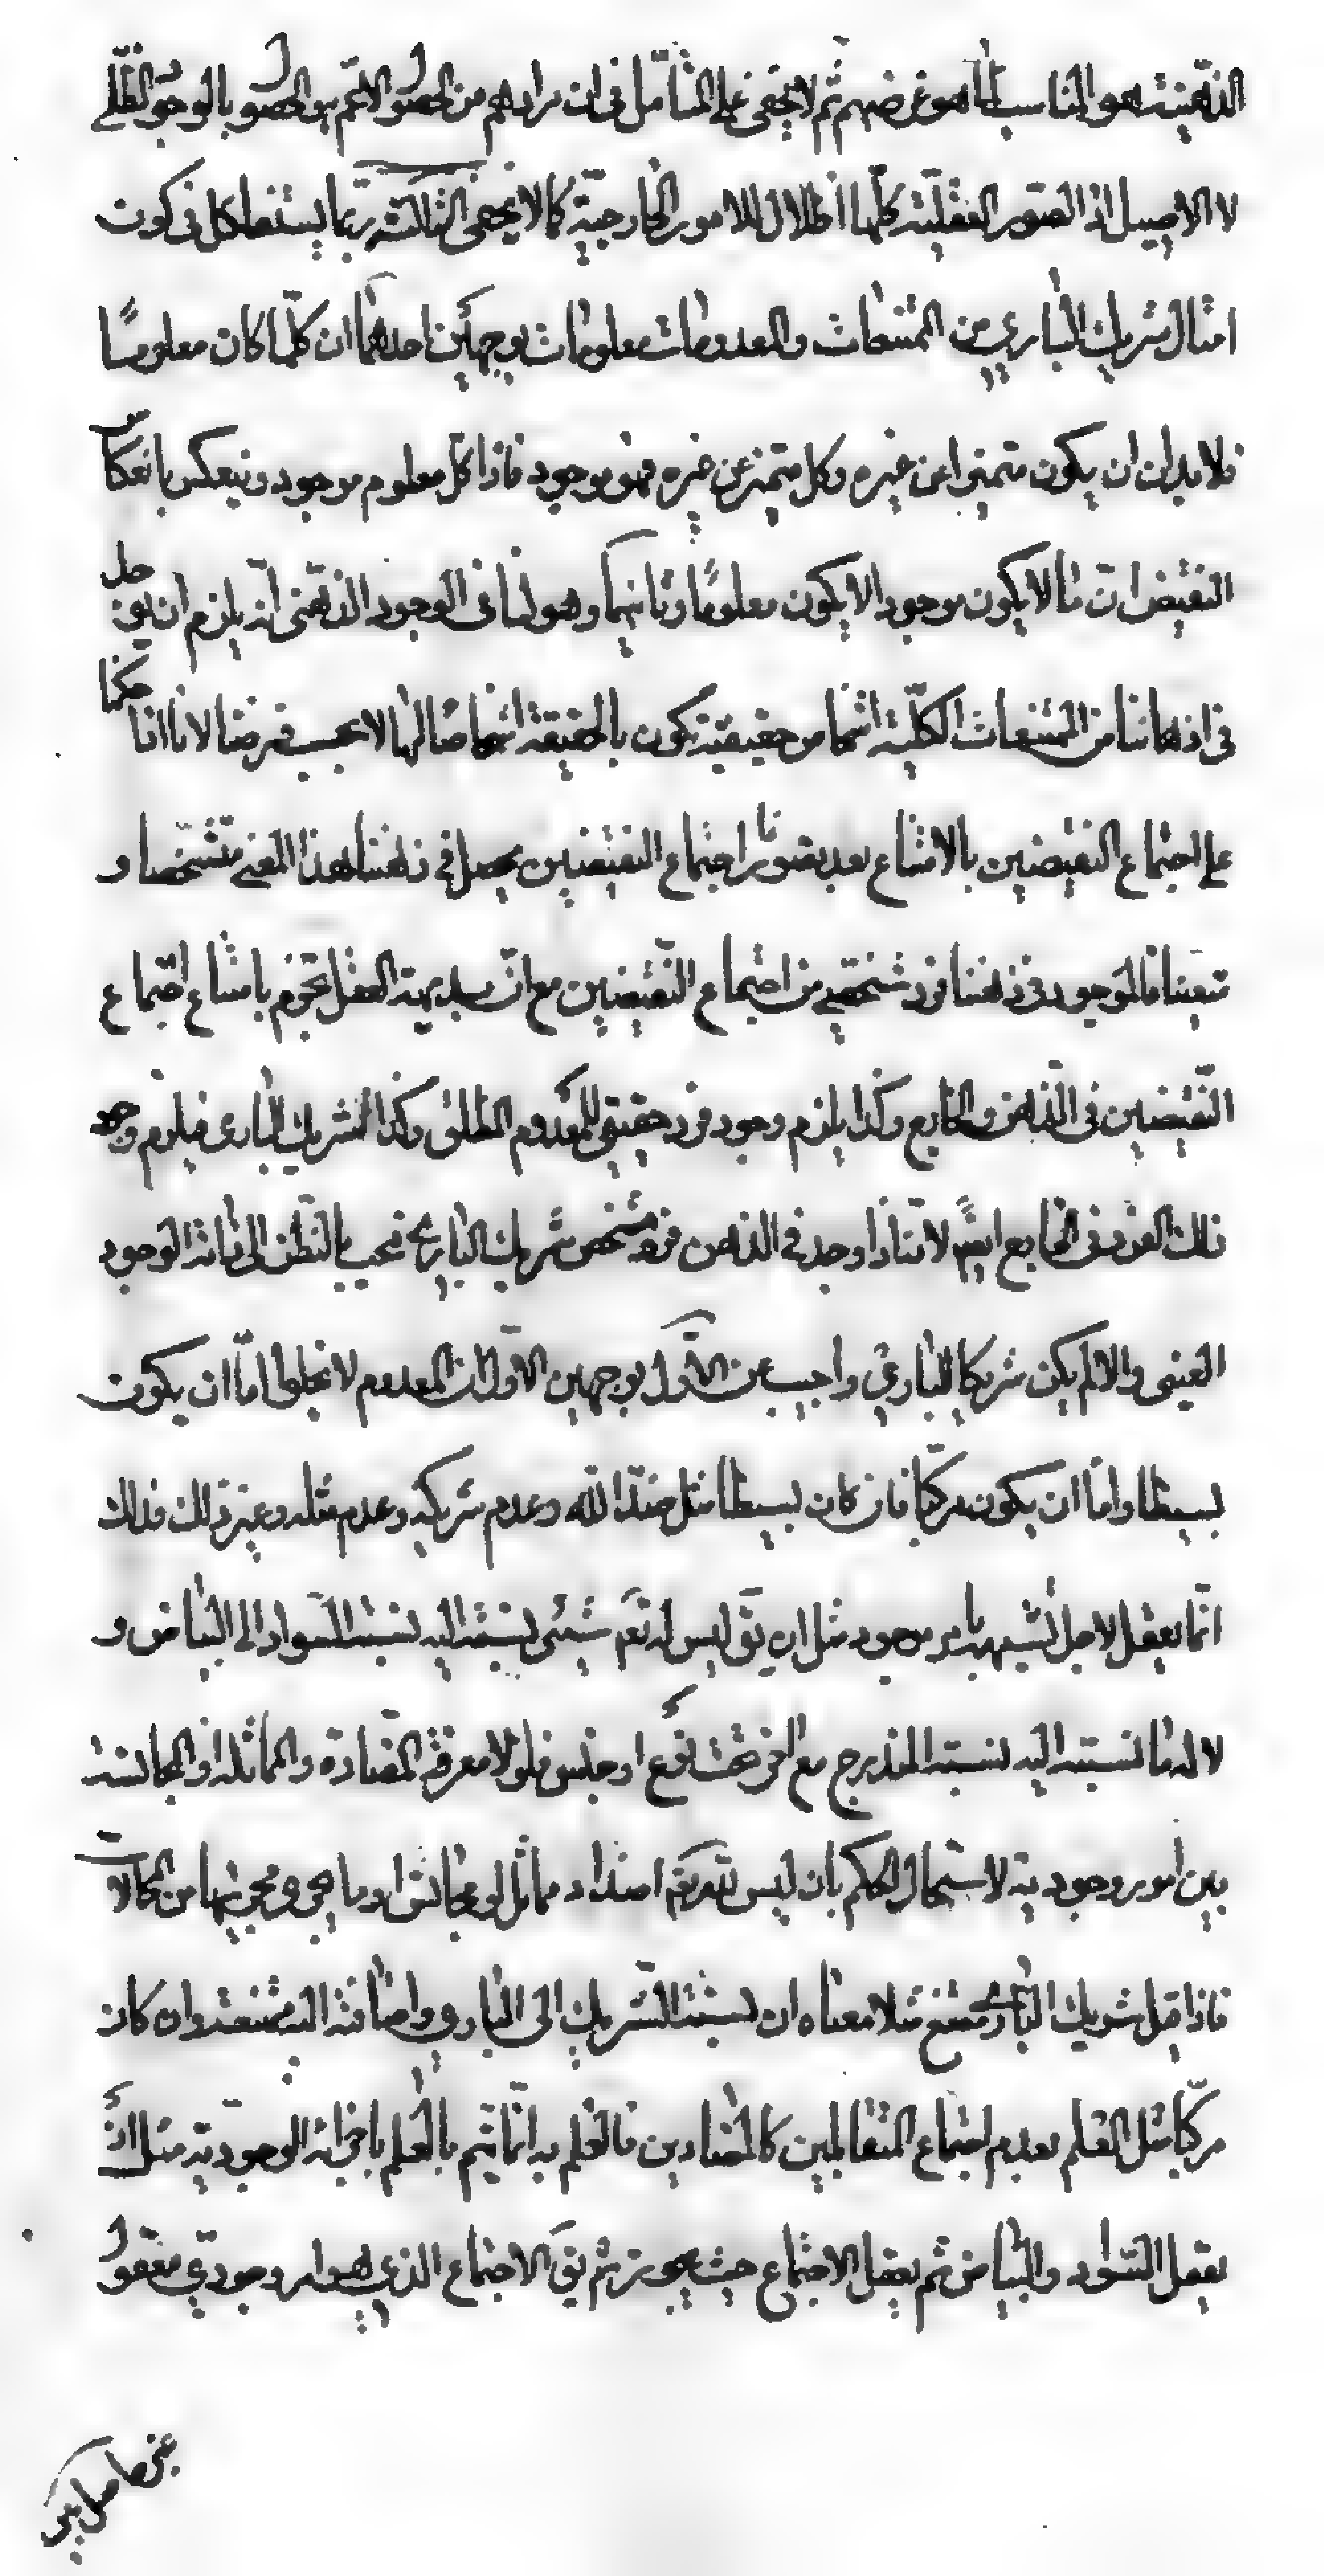 الذهنیة هو المناسب لما هو غرضهم ثم لا يخفى على المتأمل فى ان مرادهم من الحصول الاعم هو الحصول بالوجود الظلى
لا الاصيل اذ الصور العقلية كلها اظلال للامور الخارجية كما لا يخفى الثالثة ربما يستشكل فى كون
امثال شريك البارى من الممتنعات والمعدومات معلومات بوجهين احدهما ان كلما كان معلومًا
فلا بد ان يكون متميزا عن غيره وكل متميز عن غيره فهو موجود فاذا كل معلوم موجود وينعكس بانعكاس
النقيض ان ما لا يكون موجودا لا يكون معلومًا وثانيهما وهو لنا فى الوجود الذهنى انه يلزم ان يوجد
فى اذهاننا من الممتنعات الكلية اشخاص حقيقية تكون بالحقيقة اشخاصًا لها لا بحسب فرضنا لانا اذا حكمنا
على اجتماع النقيضين بالامتناع بعد تصورنا اجتماع النقيضين يحصل فى ذهننا هذا المعنى متشخصا و
متعينا فالموجود فى ذهننا فرد شخصى من اجتماع النقيضين مع ان بديهة العقل تجزم بامتناع اجتماع
النقيضين فى الذهن والخارج وكذا يلزم وجود فرد حقيقى للمعدوم المطلق وكذا لشريك البارى فيلزم وجود
ذلك الفرد فى الخارج ايضً لانا اذا وجد فى الذهن فرد مشخص شريك البارى فيجب بالنظر الى ذاته الوجود
العينى والا لم يكن شريكا للبارى واجيب عن الاول بوجهين الاول ان المعدوم لا يخلو اما ان يكون
بسيطا واما ان يكون مركبا فان كان بسيطا مثل ضد الله وعدم شريكه وعدم مثله وغير ذلك فذلك
انما يعقل لاجل تشبيهه بامر موجود مثل ان يق ليس له تعم شيئى نسبته اليه نسبة السواد الى البياض و
لا له ما نسبته اليه نسبة المندرج مع اخر تحت نوع او جنس فلولا معرفة المضادة والمماثلة او المجانسة
بين امور وجودية لاستحال الحكم بان ليس لله تعم اضداد مماثل او مجانس او ما يجرى مجريها من المحالات
فاذا قيل شريك البارى ممتنع مثلا معناه ان نسبة الشريك الى البارى واضافته اليه ممتنعة وان كان
مركبا مثل العلم بعدم اجتماع المتقابلين كالمتضادين فالعلم به انما يتم بالعلم باجزائه الوجودية مثل ان
يعقل السواد والبياض ثم يعقل الاجتماع حيث يجوز ثم يق الاجتماع الذى هو امر وجودى معقول